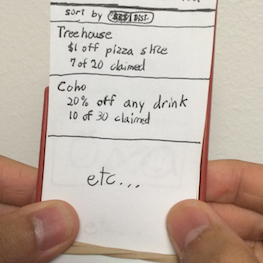 sort by
Treehouse
$1 off pizza slice
7 of 20 claimed
Coho
20% off any drink
10 of 30 claimed
etc...